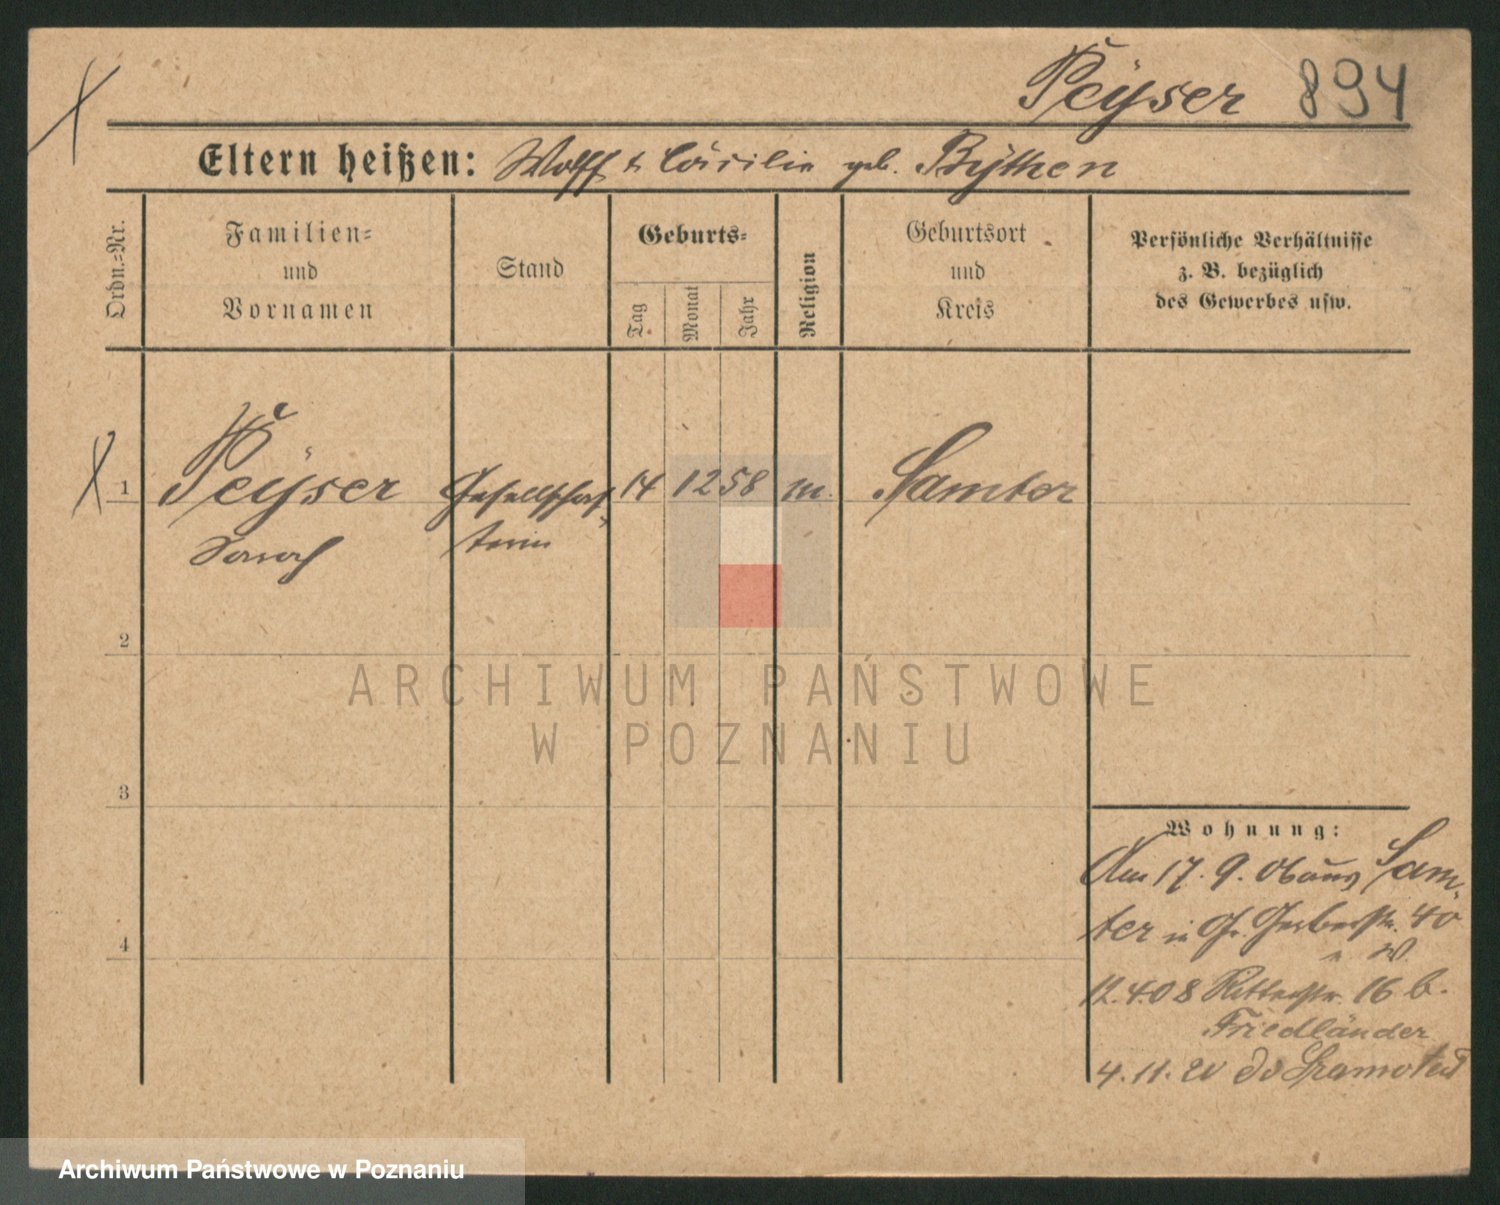 Peÿser 894
Eltern heißen: Wolff & Cäcilie geb. Bÿthen
Ordn.-Nr.
Familien-
und
Vornamen
Stand
Geburts-
Tag
Monat
Jahr
Religion
Geburtsort
und
Kreis
Persönliche Verhältnisse
z. B. bezüglich
des Gewerbes usw.
1 Peÿser Gesellschaf- 14 12 58 m. Samter
Sarah terin
2
3
4
Wohnung:
Am 17. 9. 06 aus Sam-
ter in Gr. Gerberstr. 40
W.
12.4.08 Ritterstr. 16 b.
Friedländer
4.11. 20 do
ARCHIWUM PAŃSTWOWE
W POZNANIU
Archiwum Państwowe w Poznaniu